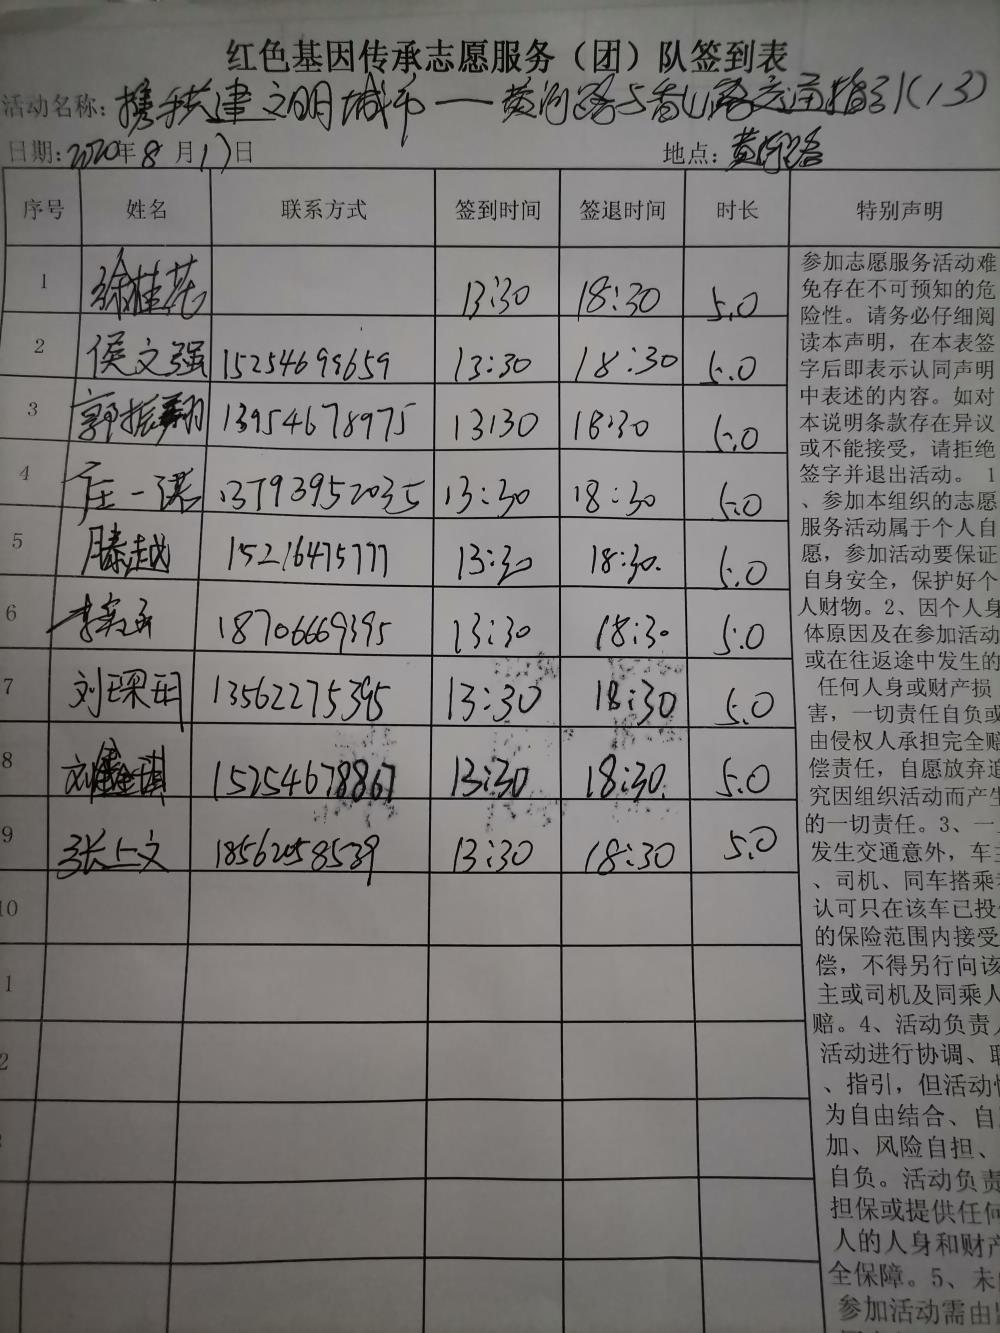 红色基因传承志愿服务（团）队签到表
活动名称：携手共建文明城市——黄河路与香山路交通指引（13）
日期：2020年8月17日 地点：黄河路
序号 姓名 联系方式 签到时间 签退时间 时长 特别声明
1 徐桂花 13:30 18:30 5.0
2 侯文强 15254698659 13:30 18:30 5.0
3 郭振翔 13954678975 13:30 18:30 5.0
4 庄一诺 13793952035 13:30 18:30 5.0
5 滕越 15216475777 13:30 18:30. 5.0
6 李 18706669395 13:30 18:30 5.0
7 刘琛玥 13562275395 13:30 18:30 5.0
8 刘 琪 15254678867 13:30 18:30. 5.0
9 张上文 18562058539 13:30 18:30 5.0
10
1
2
参加志愿服务活动难
免存在不可预知的危
险性。请务必仔细阅
读本声明，在本表签
字后即表示认同声明
中表述的内容。如对
本说明条款存在异议
或不能接受，请拒绝
签字并退出活动。 1
、参加本组织的志愿
服务活动属于个人自
愿，参加活动要保证
自身安全，保护好个
人财物。2、因个人身
体原因及在参加活动
或在往返途中发生的
任何人身或财产损
害，一切责任自负或
由侵权人承担完全赔
偿责任，自愿放弃追
究因组织活动而产生
的一切责任。3、一
发生交通意外，车主
、司机、同车搭乘
认可只在该车已投
的保险范围内接受
偿，不得另行向该
主或司机及同乘人
赔。4、活动负责人
活动进行协调、联
、指引，但活动
为自由结合、自
加、风险自担、
自负。活动负责
担保或提供任何
人的人身和财产
全保障。5、未
参加活动需由